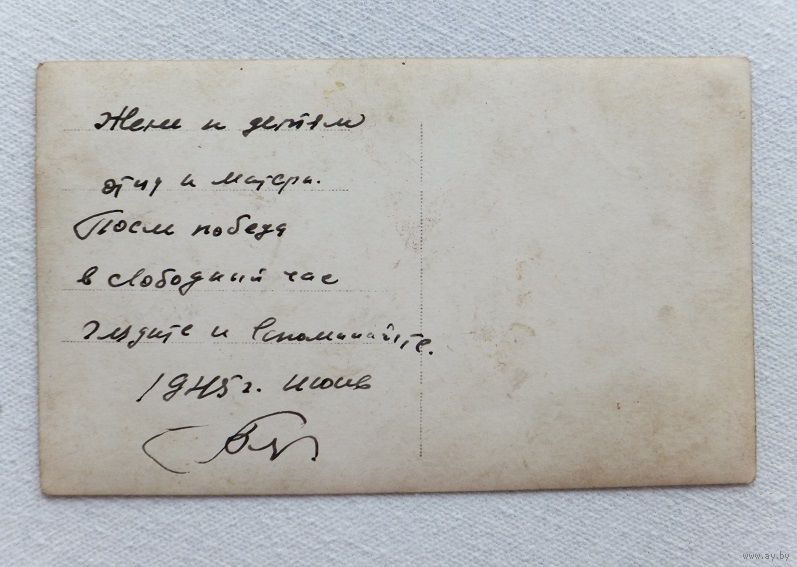 Жене и детям
отцу и матери.
После победы
в свободный час
глядите и вспоминайте.
1945 г. июнь
www.ay.by